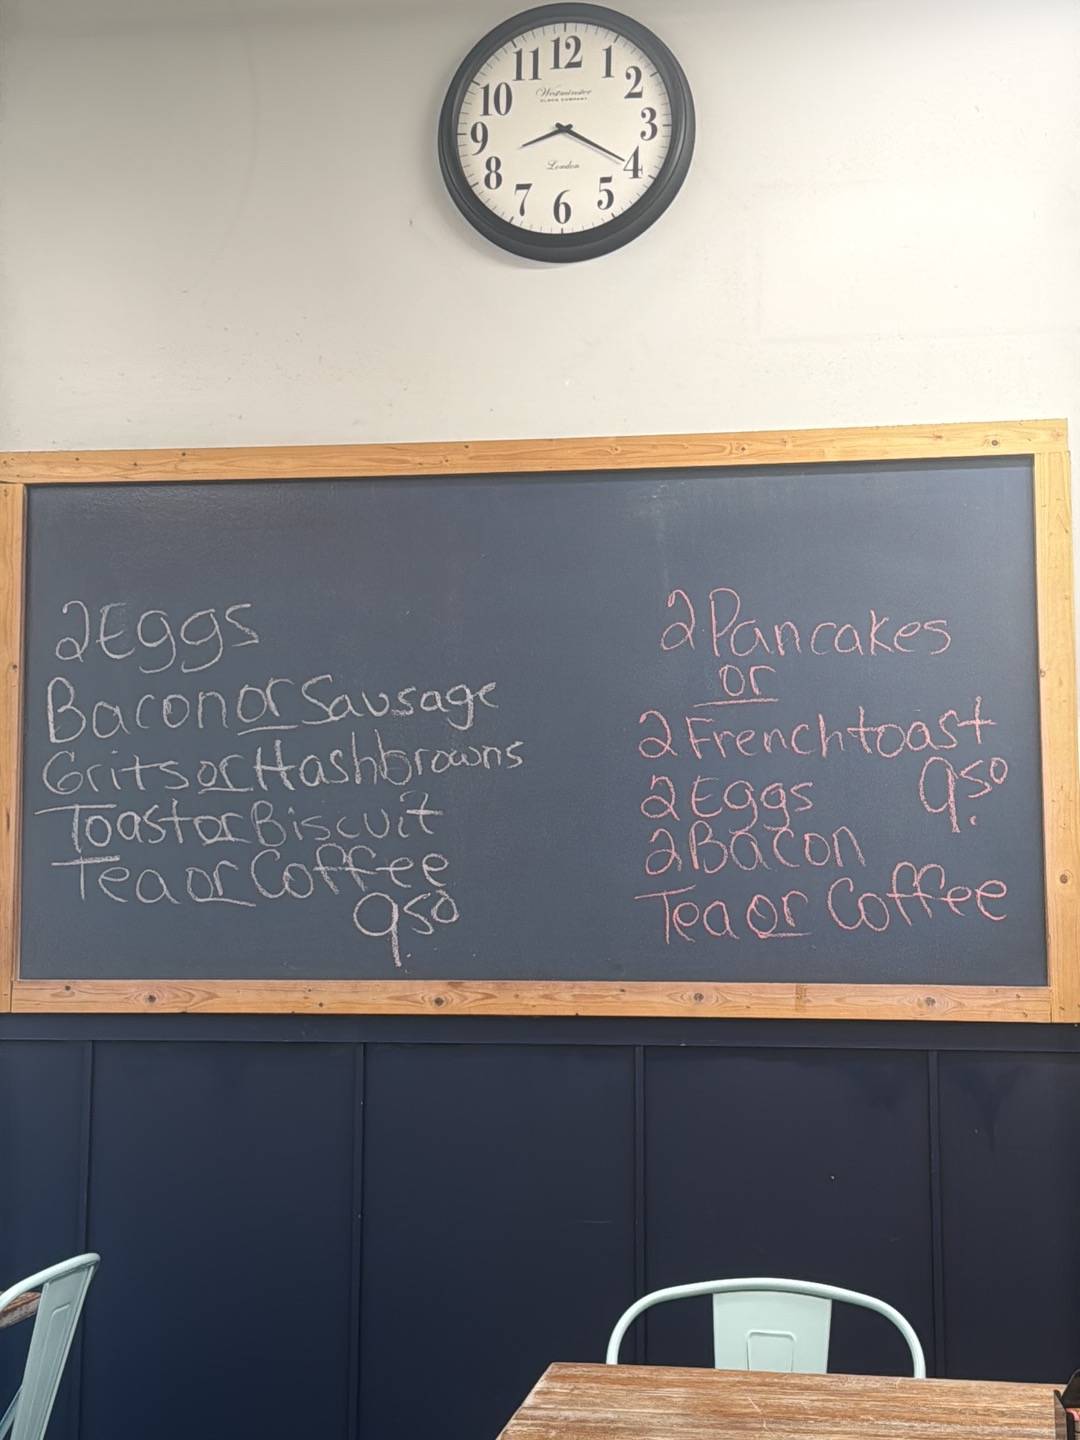 12
11
1
10
2
9
3
8
4
7
5
6
Westminster
CLOCK COMPANY
London
2 Eggs
Bacon or Sausage
Grits or Hashbrowns
Toast or Biscuit
Tea or Coffee
9.50
2 Pancakes
or
2 French toast
9.50
2 Eggs
2 Bacon
Tea or Coffee